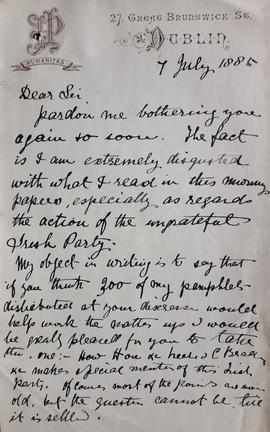 HUMANITAS
27, Great Brunswick St.
Dublin.
7 July 1885
Dear Sir,
Pardon me bothering you
again so soon. The fact
is I am extremely disgusted
with what I read in this morning
papers, especially as regards
the action of the ungrateful
Irish Party.
My object in writing is to say that
if you think 200 of my pamphlets
distributed at your discretion would
help work the matter up I would
be greatly pleased for you to take
one :- How
makes special mention of this Irish
Party. Of course most of the points are now
old, but the question cannot be till
it is settled.